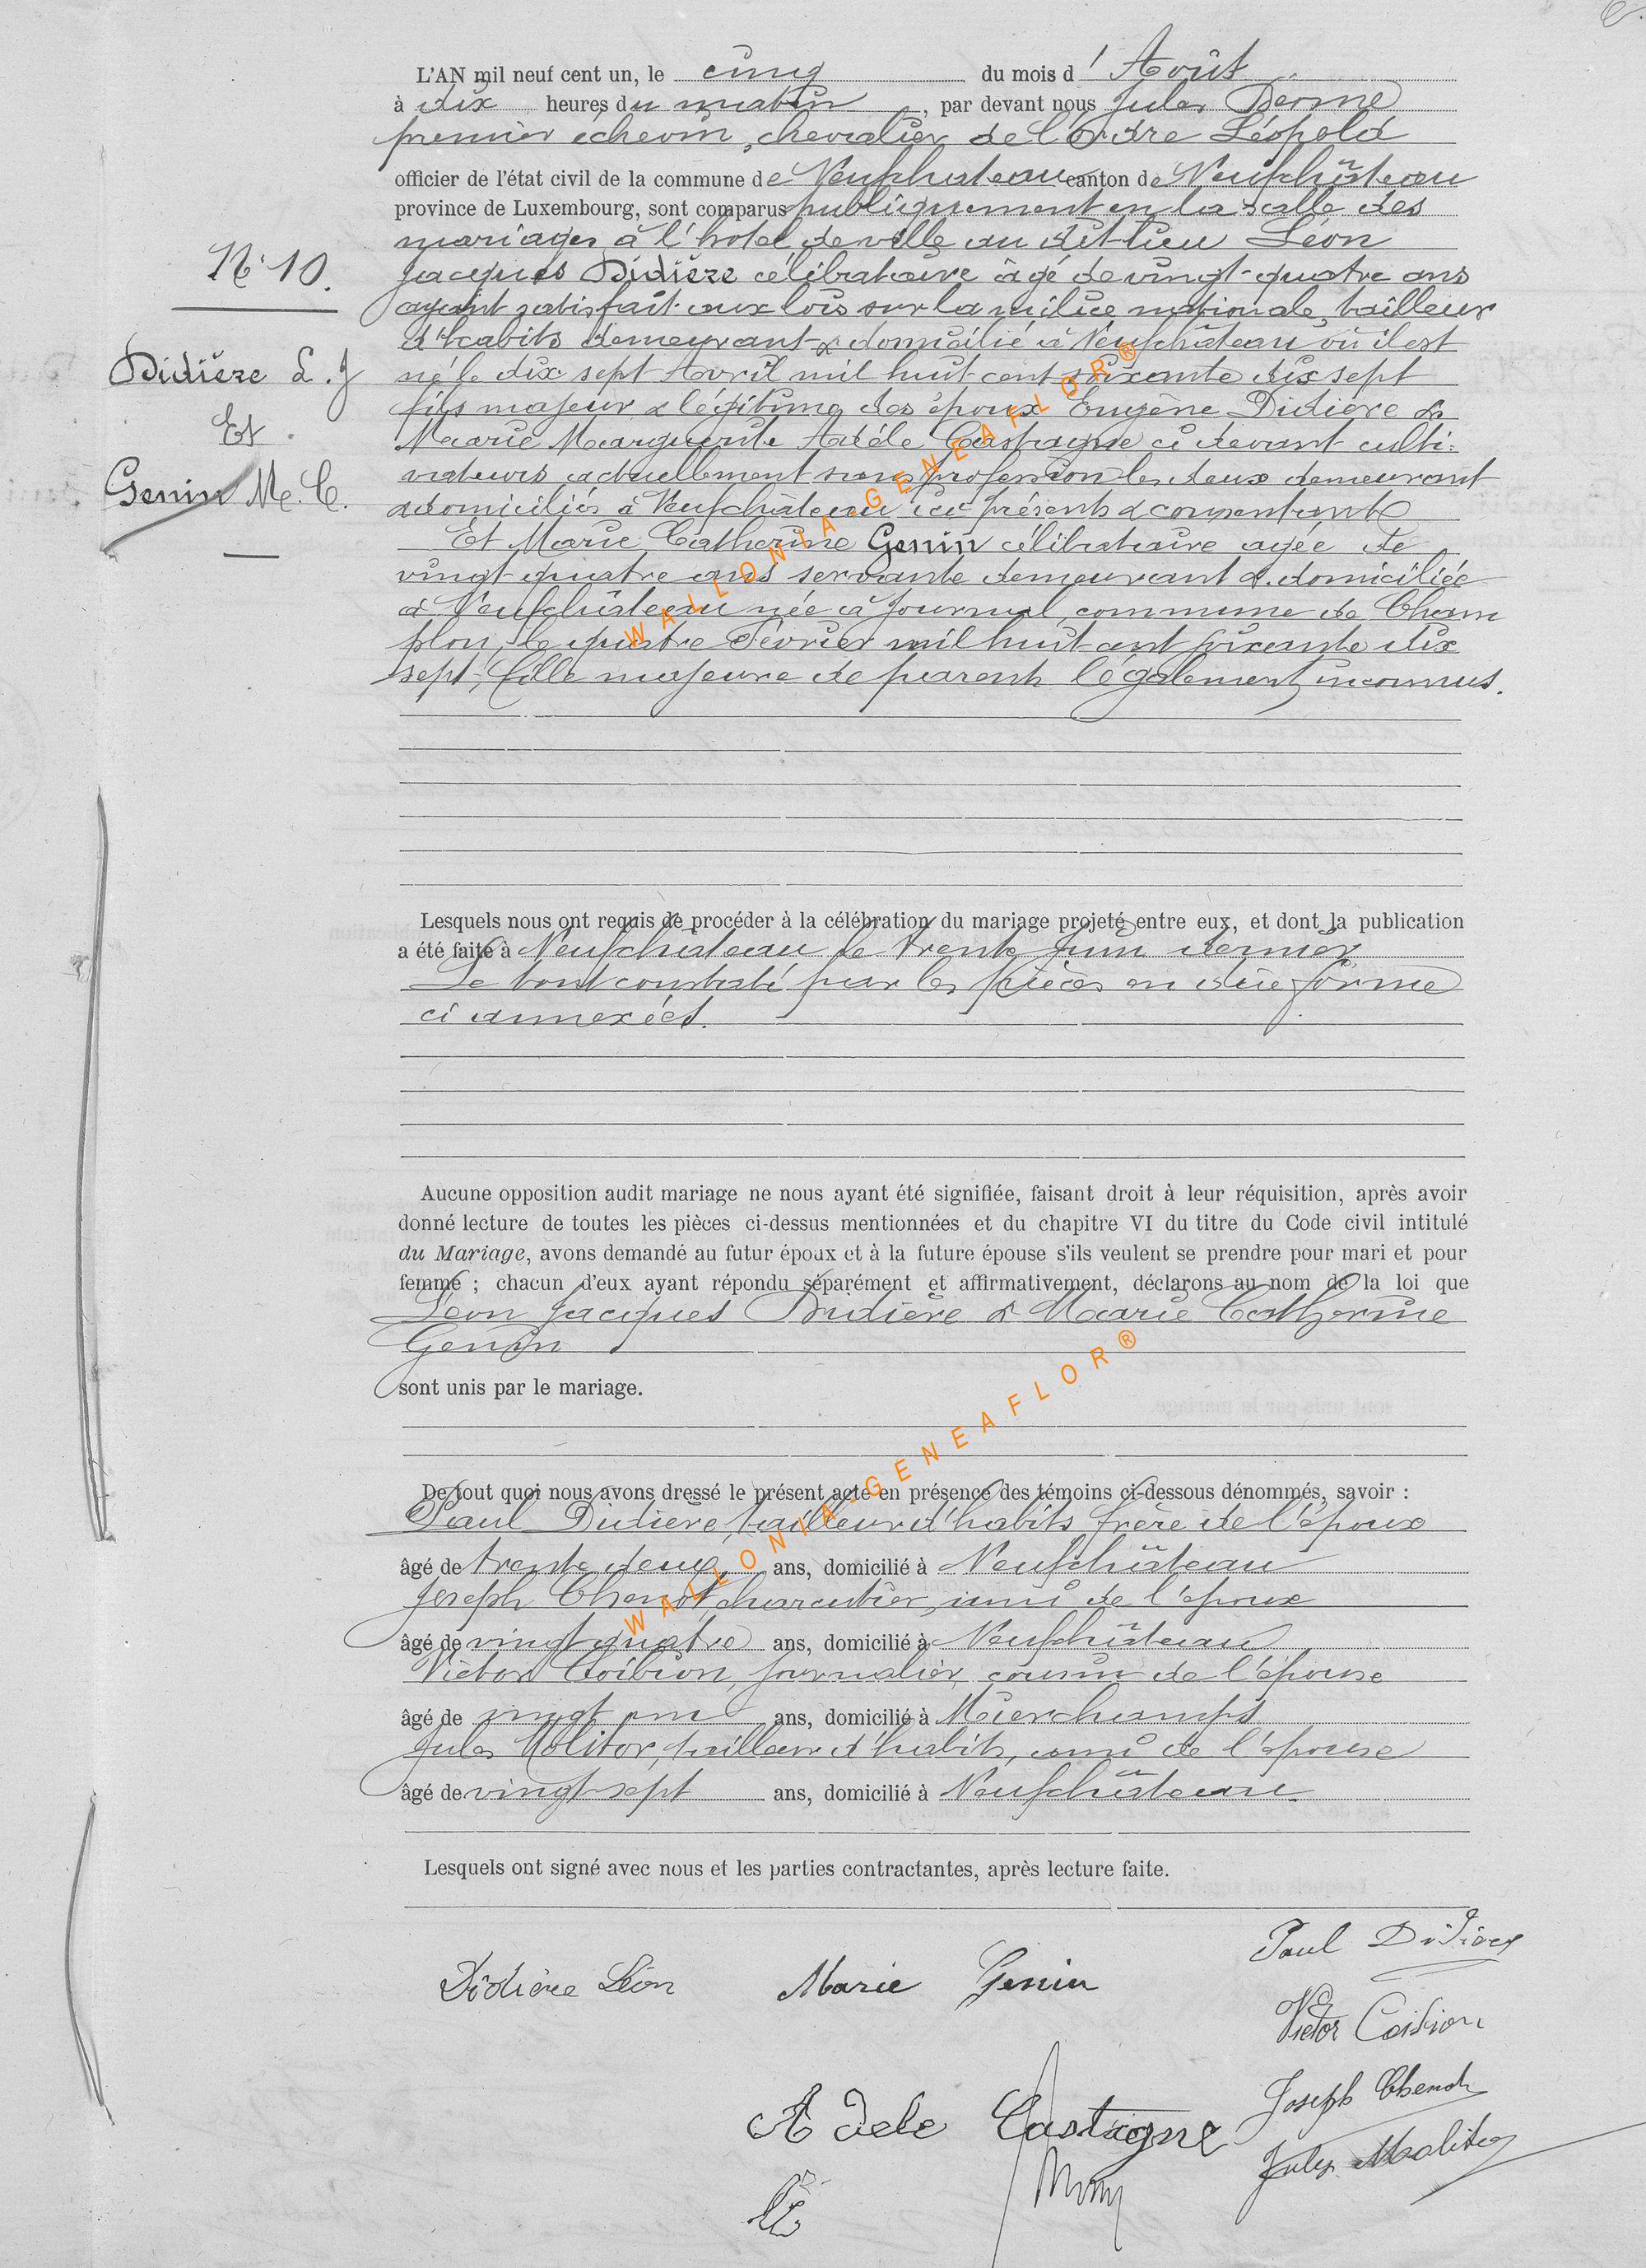 L'AN mil neuf cent un, le cinq du mois d'Août
à dix heures du matin, par devant nous Jules
premier échevin, chevalier de l'Ordre Léopold
officier de l'état civil de la commune de Neufchateau canton de Neufchâteau
province de Luxembourg, sont comparus publiquement en la salle des
mariages à l'hotel de ville au dit lieu Léon
N° 10.
Jacques Didière célibataire âgé de vingt-quatre ans
ayant satisfait aux lois sur la milice nationale, tailleur
d'habits demeurant & domicilié à Neufchâteau où il est
Didière L. J
né le dix sept Avril mil huit cent soixante dix sept
fils majeur & légitime des époux Eugène Didière &
Et
Marie Marguerite Adèle Castagne ci devant culti-
vateurs actuellement sans profession les deux demeurant
Genin M. C.
& domiciliés à Neufchâteau ici présents & consentants
Et Marie Catherine Genin célibataire agée de
vingt-quatre ans servante demeurant & domiciliée
à Neufchâteau née à Journal commune de Cham
plon, le quatre Février mil huit cent soixante dix
sept, fille majeure de parents légalement inconnus.
WALLONIA-GENEAFLOR®
Lesquels nous ont requis de procéder à la célébration du mariage projeté entre eux, et dont la publication
a été faite à Neufchateau le trente Juin dernier
Le tout constaté par les pièces en due forme
ci annexées.
Aucune opposition audit mariage ne nous ayant été signifiée, faisant droit à leur réquisition, après avoir
donné lecture de toutes les pièces ci-dessus mentionnées et du chapitre VI du titre du Code civil intitulé
du Mariage, avons demandé au futur époux et à la future épouse s'ils veulent se prendre pour mari et pour
femme ; chacun d'eux ayant répondu séparément et affirmativement, déclarons au nom de la loi que
Léon Jacques Didière & Marie Catherine
Genin
sont unis par le mariage.
WALLONIA-GENEAFLOR®
De tout quoi nous avons dressé le présent acte en présence des témoins ci-dessous dénommés, savoir :
Paul Didière, tailleur d'habits frère de l'époux
âgé de trente deux ans, domicilié à Neufchâteau
Joseph Chenot charcutier, ami de l'époux
âgé de vingt quatre ans, domicilié à Neufchâteau
Victor Coibion, journalier, cousin de l'épouse
âgé de vingt un ans, domicilié à Mierchamps
Jules Molitor, tailleur d'habits, ami de l'épouse
âgé de vingt-sept ans, domicilié à Neufchâteau.
Lesquels ont signé avec nous et les parties contractantes, après lecture faite.
Paul Didière
Didière Léon Marie Genin
Victor Coibion
Joseph Chenot
Adele Castagne
Jules Molitor